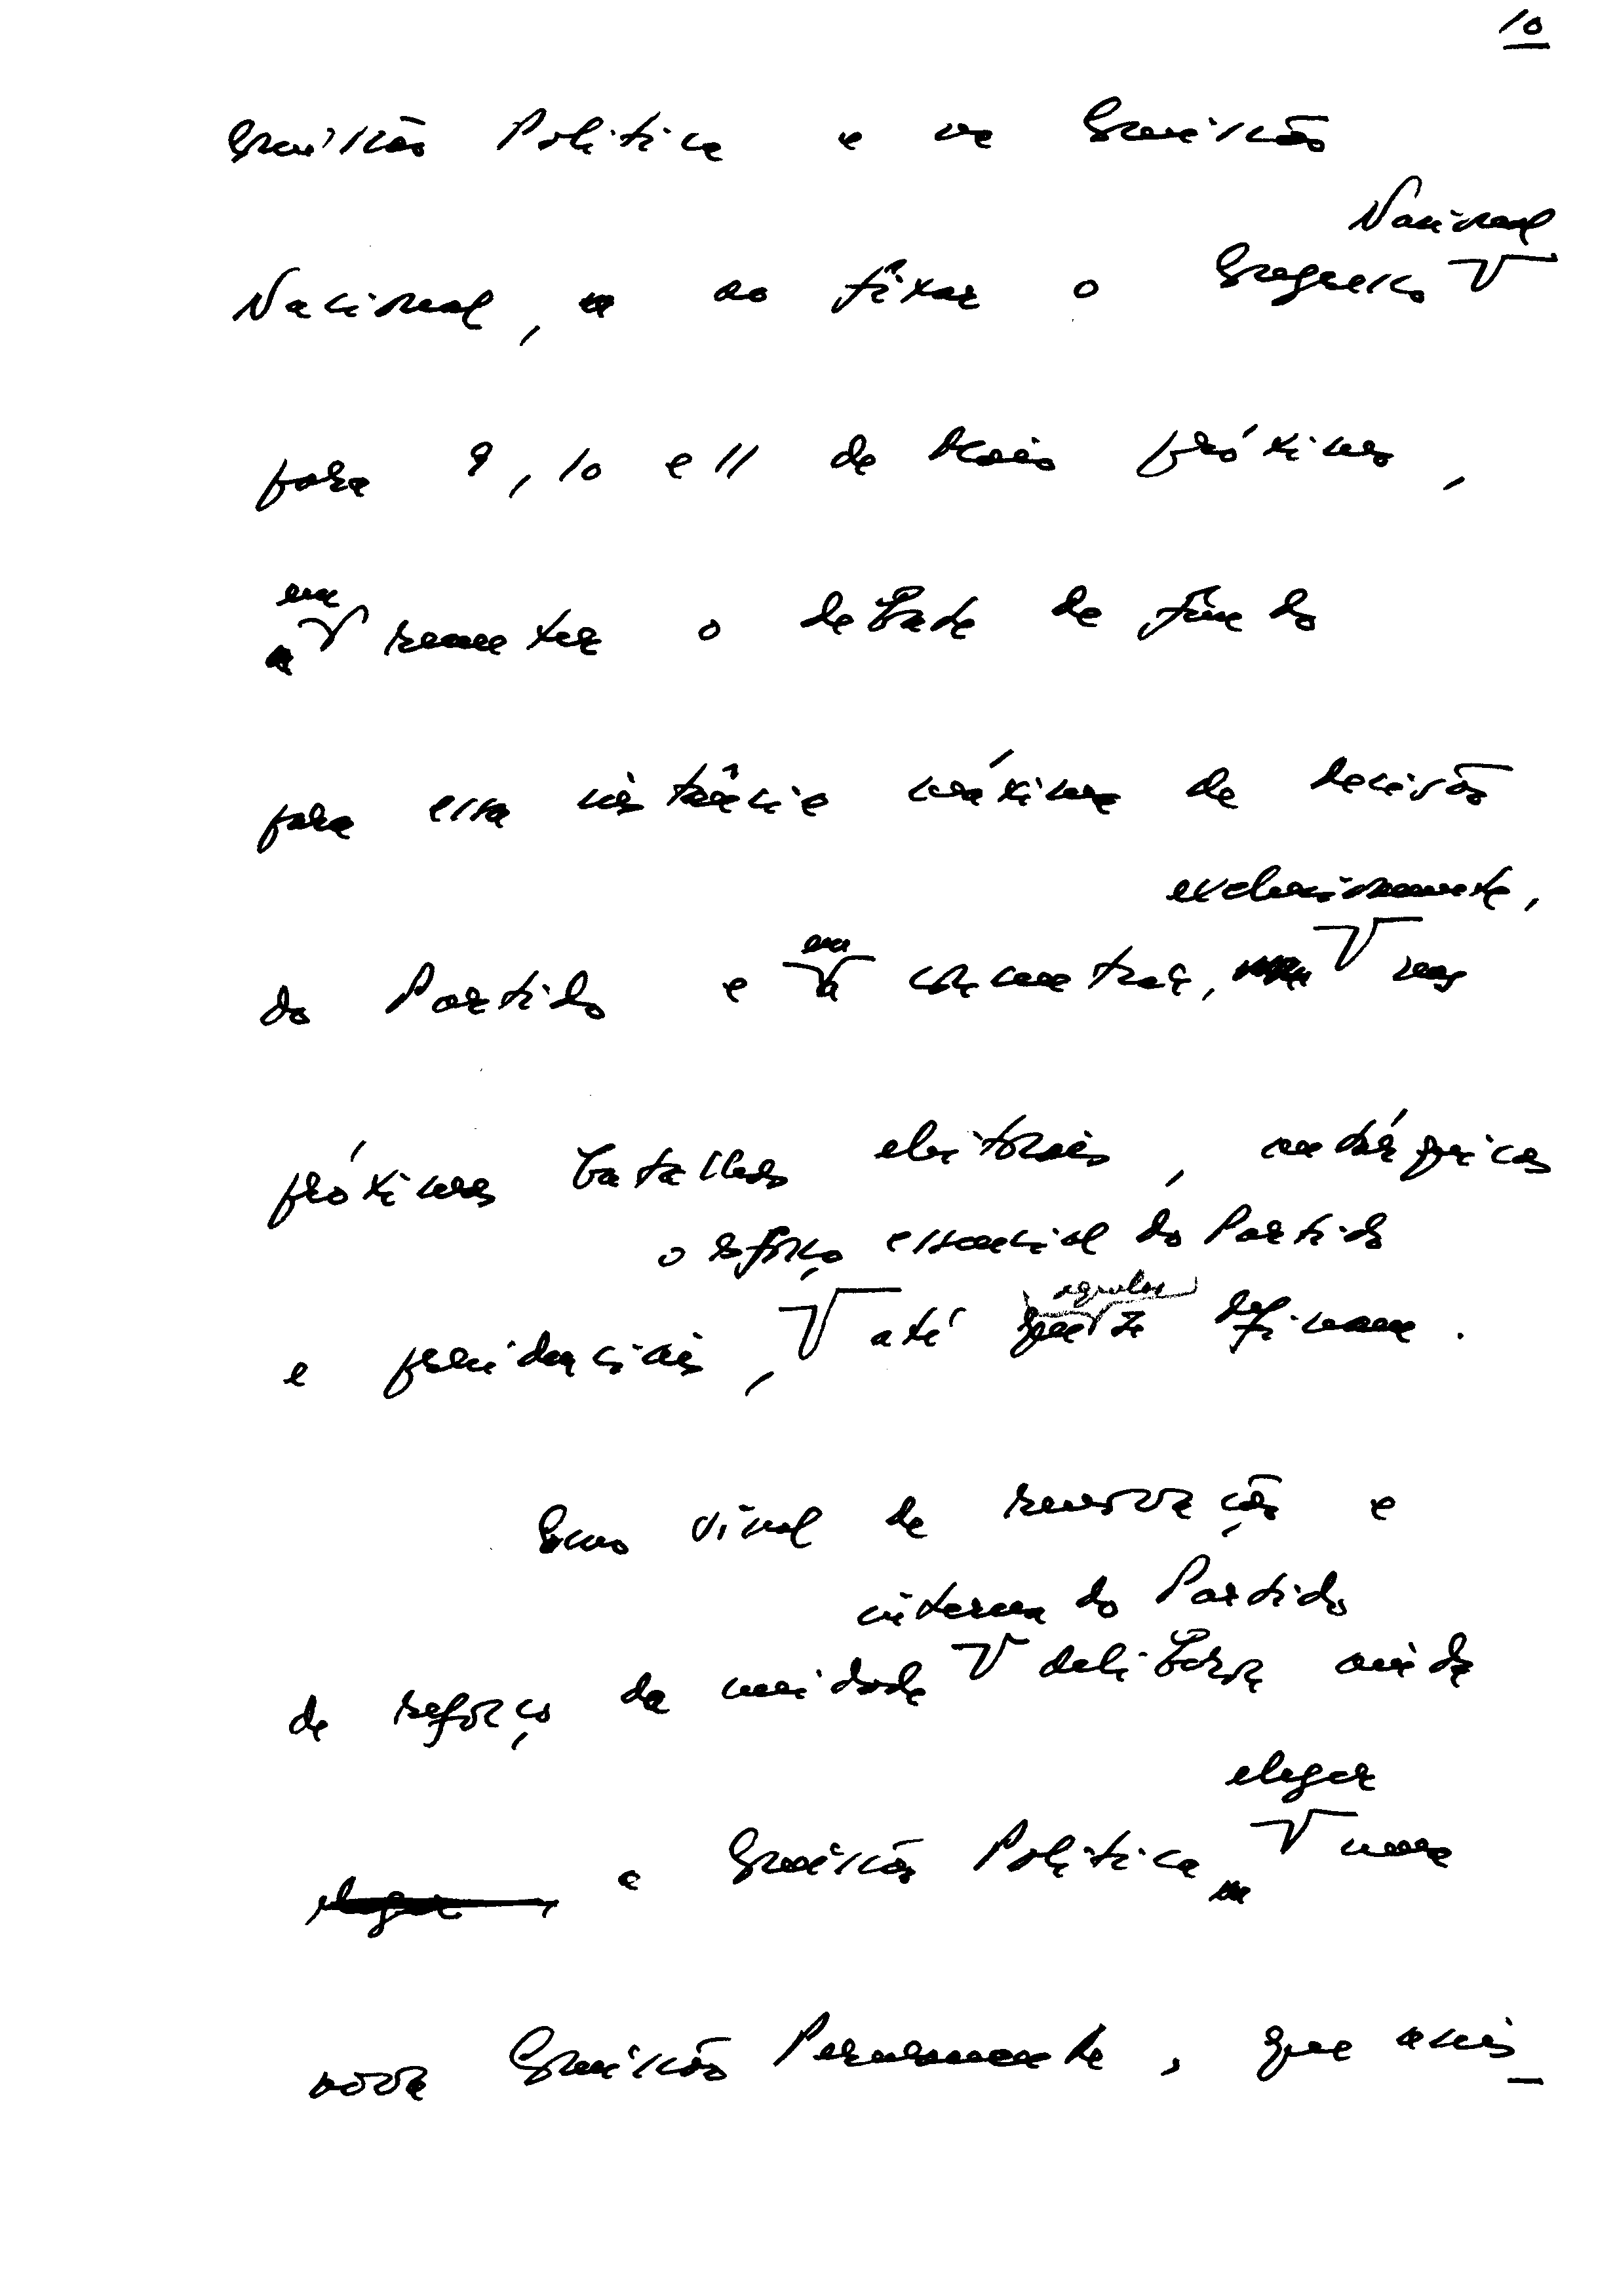 10
Comissão Política e na Comissão
Nacional
Nacional, ao fixar o Congresso
para 9, 10 e 11 de Maio próximo,
em
remeter o debate de fundo
para essa instância máxima de decisão
exclusivamente,
em
do Partido e concentrar, nas
próximas batalhas eleitorais, autárquicas
o esforço essencial do Partido
e presidenciais, até que se definam.
Como sinal de renovação e
interna do Partido
de reforço da unidade deliberou ainda
eleger
eleger, a Comissão Política uma
nova Comissão Permanente, que assis-